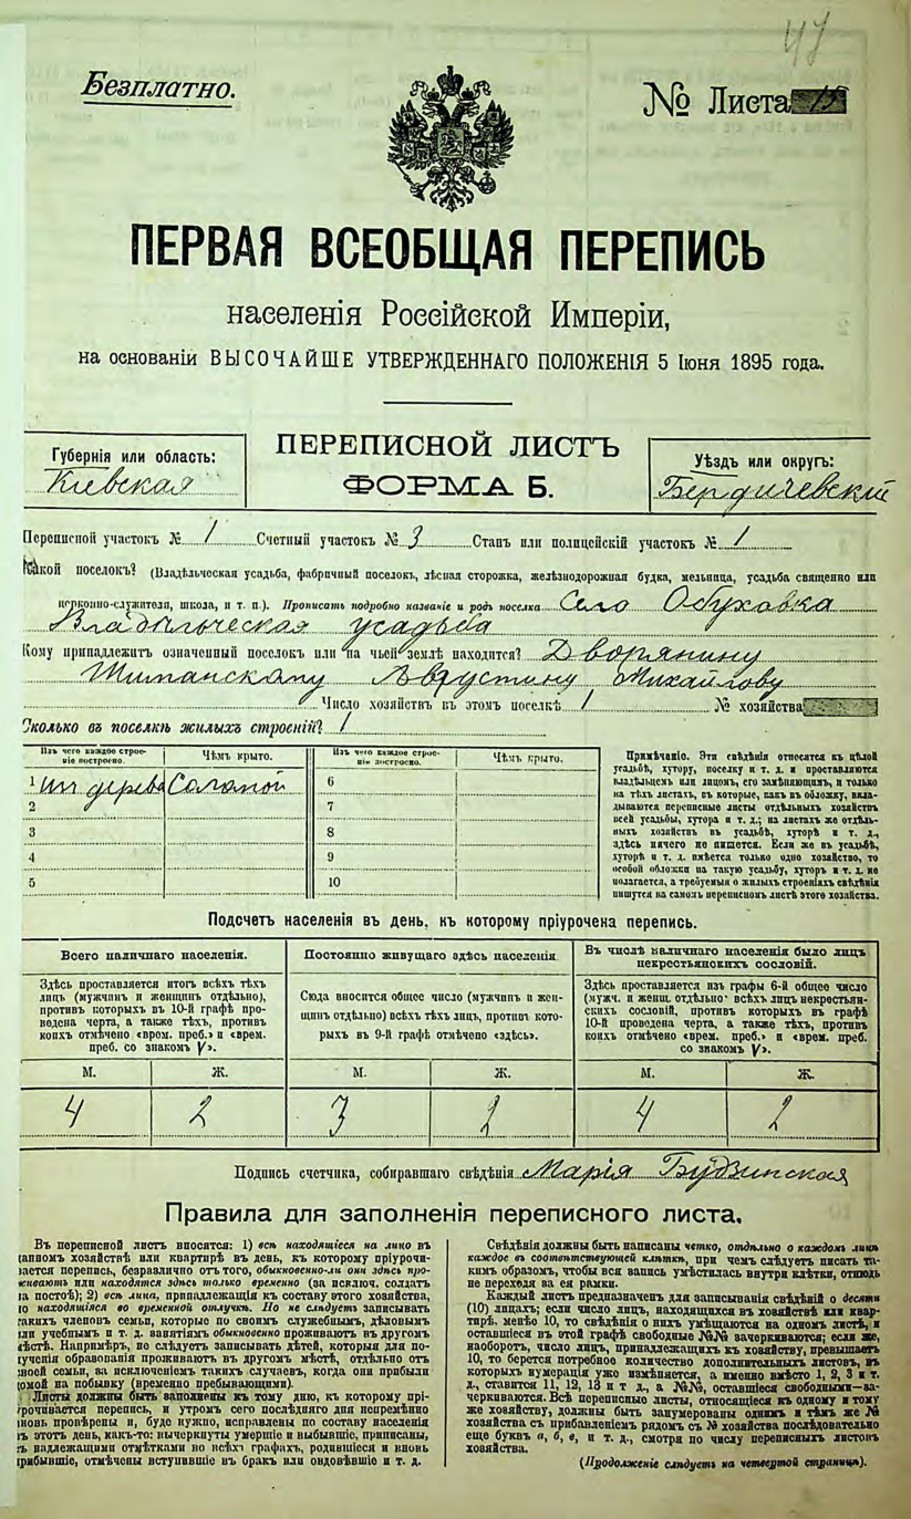 47
Безплатно.
№ Листа
ПЕРВАЯ ВСЕОБЩАЯ ПЕРЕПИСЬ
населенія Россійской Имперіи,
на основаніи ВЫСОЧАЙШЕ УТВЕРЖДЕННАГО ПОЛОЖЕНІЯ 5 Іюня 1895 года.
ПЕРЕПИСНОЙ ЛИСТЪ
ФОРМА Б.
Губернія или область:
Кіевская
Уѣздъ или округъ:
Бердичевскій
Переписной участокъ № 1 Счетный участокъ № 3 Станъ или полицейскій участокъ № 1
Какой поселокъ? (Владѣльческая усадьба, фабричный поселокъ, лѣсная сторожка, желѣзнодорожная будка, мельница, усадьба священно или
церковно-служителя, школа, и т. п.). Прописать подробно названіе и родъ поселка Село Обуховка
Владѣльческая усадьба
Кому принадлежитъ означенный поселокъ или на чьей землѣ находится? Дворянину
Шиманскому Августину Михайлову
Число хозяйствъ въ этомъ поселкѣ 1 № хозяйства
Сколько въ поселкѣ жилыхъ строеній? 1
Изъ чего каждое строеніе построено. Чѣмъ крыто. Изъ чего каждое строеніе построено. Чѣмъ крыто.
1 Изъ дерева Соломой 6
2 7
3 8
4 9
5 10
Примѣчаніе. Эти свѣдѣнія относятся къ цѣлой
усадьбѣ, хутору, поселку и т. д. и проставляются
владѣльцемъ или лицомъ, его замѣняющимъ, и только
на тѣхъ листахъ, въ которые, какъ въ обложку, вкла-
дываются переписные листы отдѣльныхъ хозяйствъ
всей усадьбы, хутора и т. д.; на листахъ же отдѣль-
ныхъ хозяйствъ въ усадьбѣ, хуторѣ и т. д.,
здѣсь ничего не пишется. Если же въ усадьбѣ,
хуторѣ и т. д. имѣется только одно хозяйство, то
особой обложки на такую усадьбу, хуторъ и т. д. не
полагается, а требуемыя о жилыхъ строеніяхъ свѣдѣнія
пишутся на самомъ переписномъ листѣ этого хозяйства.
Подсчетъ населенія въ день, къ которому пріурочена перепись.
Всего наличнаго населенія.
Здѣсь проставляется итогъ всѣхъ тѣхъ
лицъ (мужчинъ и женщинъ отдѣльно),
противъ которыхъ въ 10-й графѣ про-
ведена черта, а также тѣхъ, противъ
коихъ отмѣчено «врем. преб.» и «врем.
преб. со знакомъ V».
Постоянно живущаго здѣсь населенія
Сюда вносится общее число (мужчинъ и жен-
щинъ отдѣльно) всѣхъ тѣхъ лицъ, противъ кото-
рыхъ въ 9-й графѣ отмѣчено «здѣсь».
Въ числѣ наличнаго населенія было лицъ
некрестьянскихъ сословій.
Здѣсь проставляется изъ графы 6-й общее число
(мужч. и женщ. отдѣльно) всѣхъ лицъ некрестьян-
скихъ сословій, противъ которыхъ въ графѣ
10-й проведена черта, а также тѣхъ, противъ
коихъ отмѣчено «врем. преб.» и «врем. преб.
со знакомъ V».
М. Ж. М. Ж. М. Ж.
4 2 3 2 4 2
Подпись счетчика, собиравшаго свѣдѣнія Марія Будзинская
Правила для заполненія переписного листа.
Въ переписной листъ вносятся: 1) всѣ находящіеся на лицо въ
данномъ хозяйствѣ или квартирѣ въ день, къ которому пріурочи-
вается перепись, безразлично отъ того, обыкновенно-ли они здѣсь про-
живаютъ или находятся здѣсь только временно (за исключ. солдатъ
на постоѣ); 2) всѣ лица, принадлежащія къ составу этого хозяйства,
но находящіяся во временной отлучкѣ. Но не слѣдуетъ записывать
такихъ членовъ семьи, которые по своимъ служебнымъ, дѣловымъ
или учебнымъ и т. д. занятіямъ обыкновенно проживаютъ въ другомъ
мѣстѣ. Напримѣръ, не слѣдуетъ записывать дѣтей, которыя для по-
лученія образованія проживаютъ въ другомъ мѣстѣ, отдѣльно отъ
своей семьи, за исключеніемъ такихъ случаевъ, когда они прибыли
домой на побывку (временно пребывающими).
Листы должны быть заполнены къ тому дню, къ которому прі-
урочивается перепись, и утромъ сего послѣдняго дня непремѣнно
вновь провѣрены и, буде нужно, исправлены по составу населенія
въ этотъ день, какъ-то: вычеркнуты умершіе и выбывшіе, приписаны,
съ надлежащими отмѣтками во всѣхъ графахъ, родившіеся и вновь
прибывшіе, отмѣчены вступившіе въ бракъ или овдовѣвшіе и т. д.
Свѣдѣнія должны быть написаны четко, отдѣльно о каждомъ лицѣ
каждое въ соотвѣтствующей клѣткѣ, при чемъ слѣдуетъ писать та-
кимъ образомъ, чтобы вся запись умѣстилась внутри клѣтки, отнюдь
не переходя за ея рамки.
Каждый листъ предназначенъ для записыванія свѣдѣній о десяти
(10) лицахъ; если число лицъ, находящихся въ хозяйствѣ или квар-
тирѣ, менѣе 10, то свѣдѣнія о нихъ умѣщаются на одномъ листѣ, и
оставшіеся въ этой графѣ свободные №№ зачеркиваются; если же,
наоборотъ, число лицъ, принадлежащихъ къ хозяйству, превышаетъ
10, то берется потребное количество дополнительныхъ листовъ, въ
которыхъ нумерація уже измѣняется, а именно вмѣсто 1, 2, 3 и т.
д., ставится 11, 12, 13 и т д., а №№, оставшіеся свободными—за-
черкиваются. Всѣ переписные листы, относящіеся къ одному и тому
же хозяйству, должны быть занумерованы однимъ и тѣмъ же №
хозяйства съ прибавленіемъ рядомъ съ № хозяйства послѣдовательно
еще буквъ а, б, в, и т. д., смотря по числу переписныхъ листовъ
хозяйства.
(Продолженіе слѣдуетъ на четвертой страницѣ).